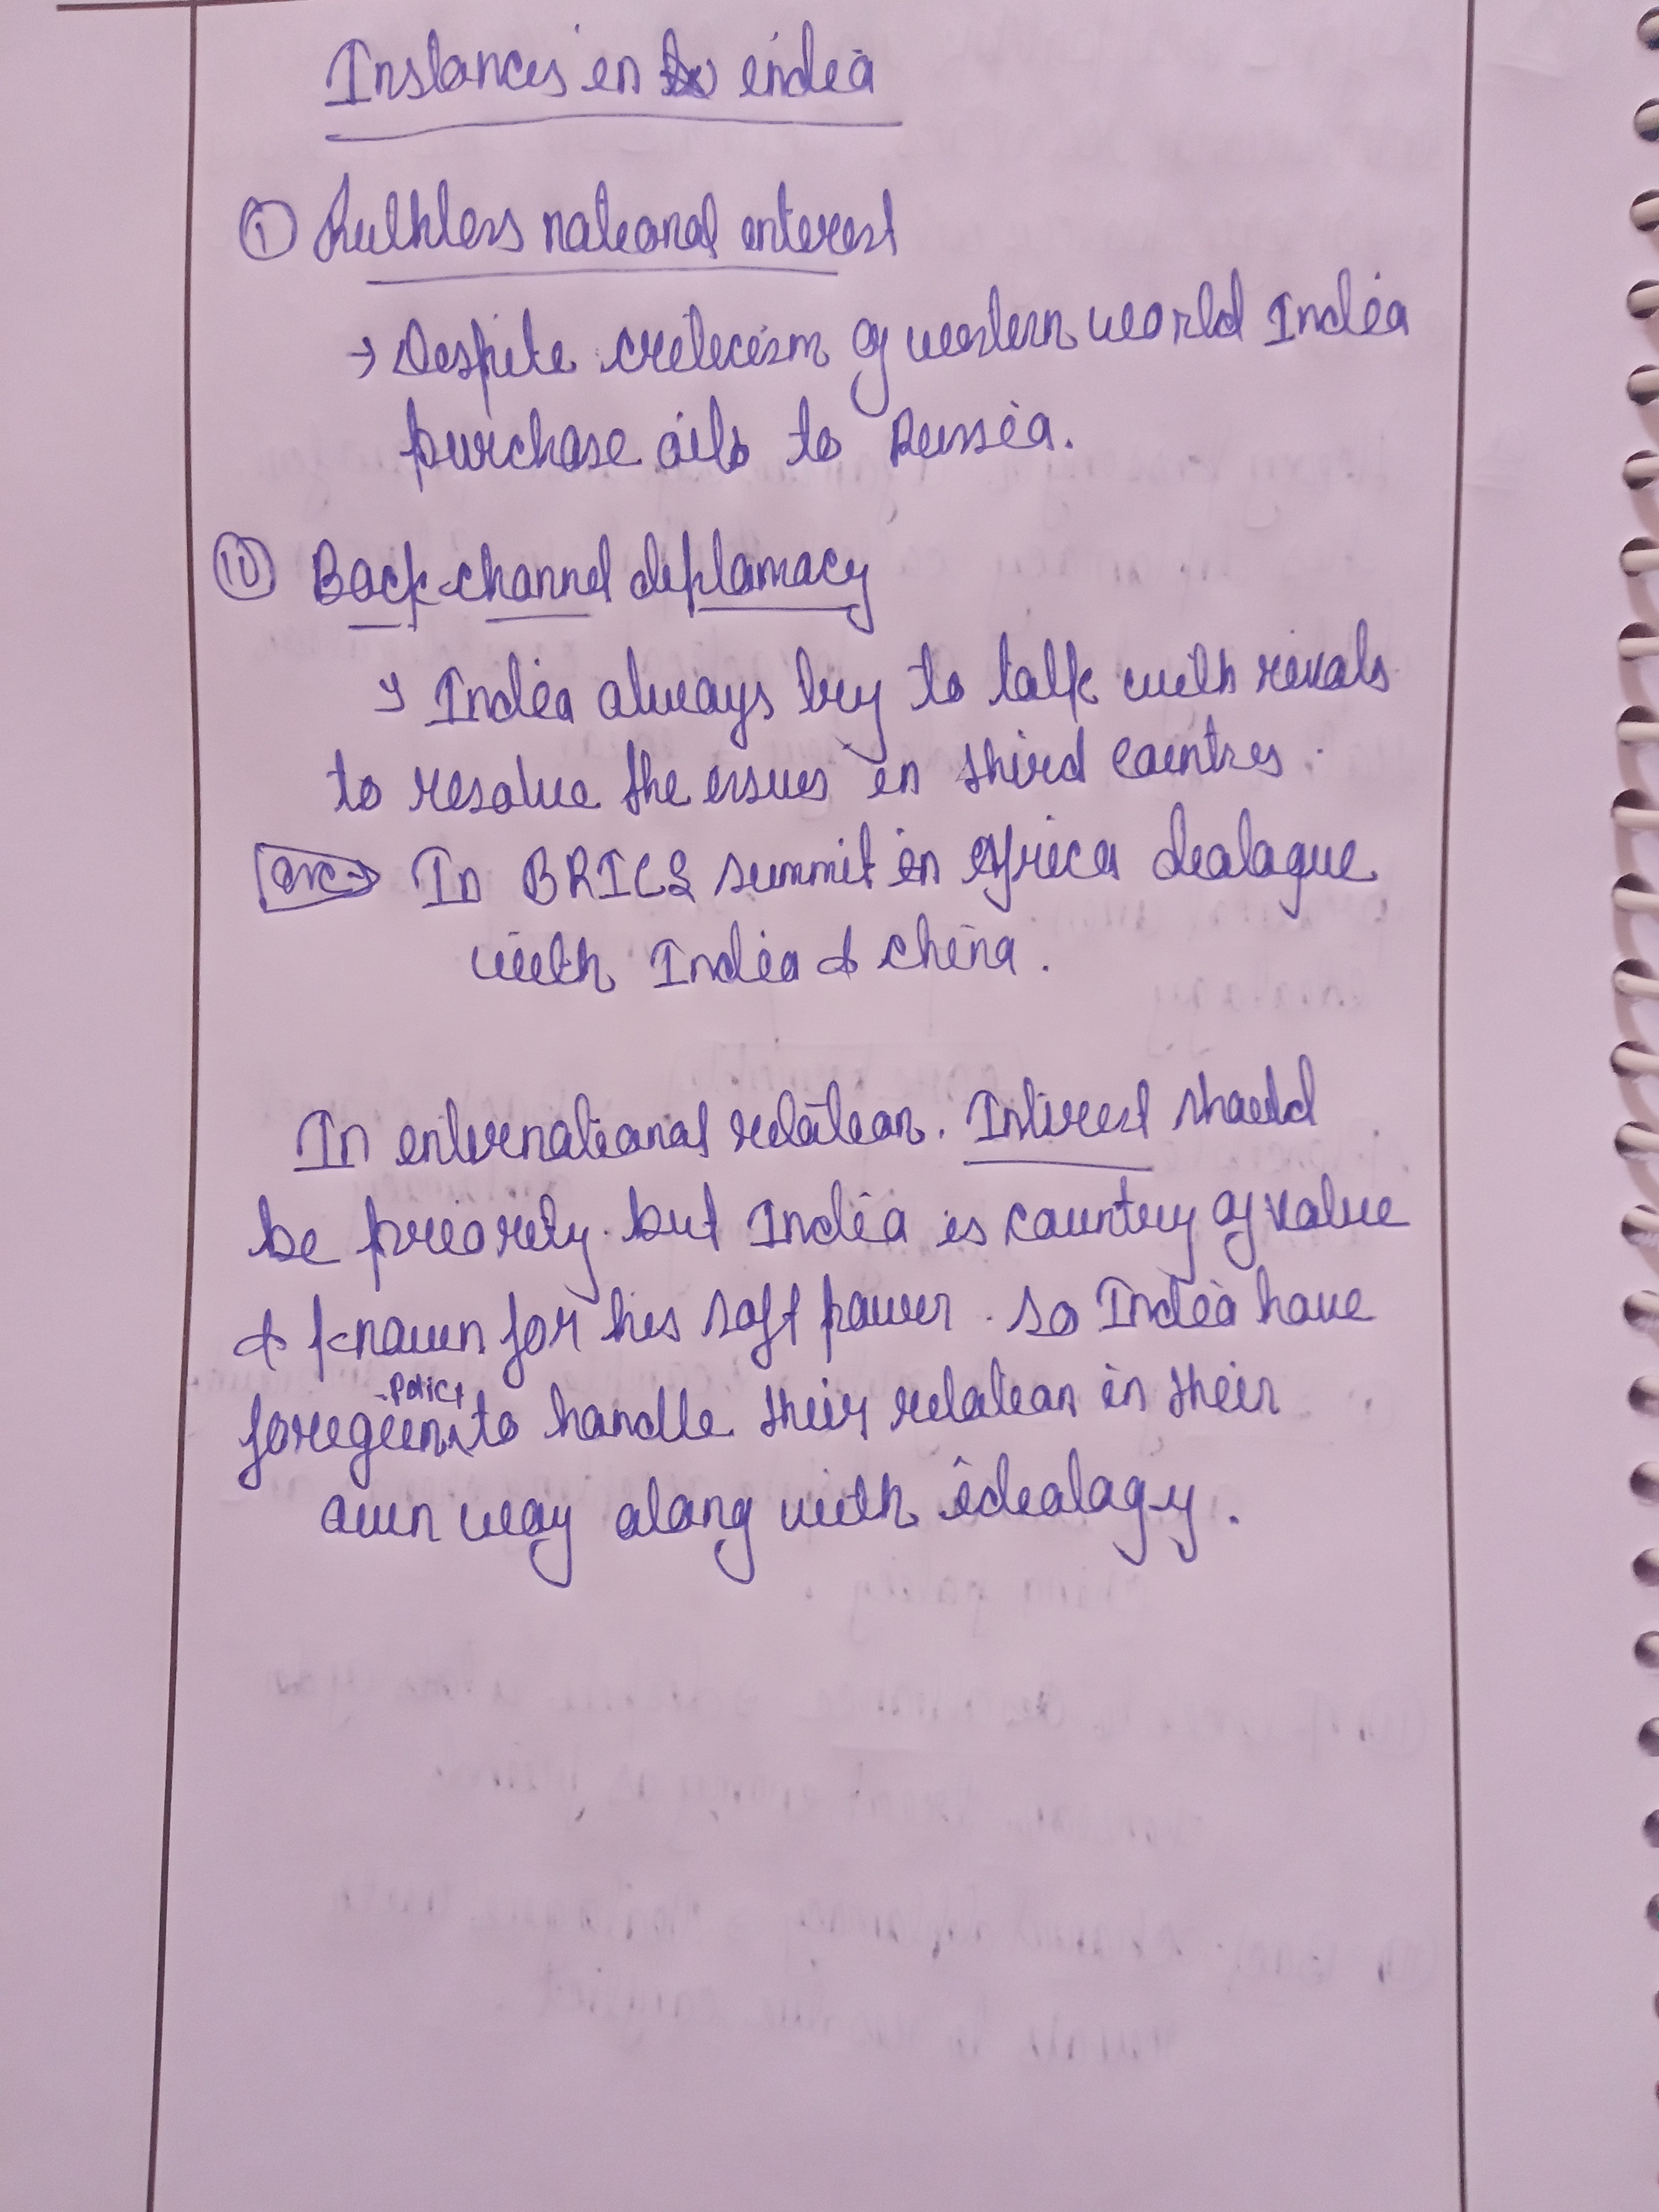 Instances in india
① Ruthless national interest
→ Despite criticism of western world India
purchase oils to Russia.
⑪ Back-channel diplomacy
→ India always try to talk with rivals
to resolve the issues in third countres.
In BRICS summit in Africa dialogue
with India & china.
In international relation. Interest should
be priority. but India is country of value
& known for his soft power. so India have
foregien policy to handle their relation in their
own way along with idealogy.